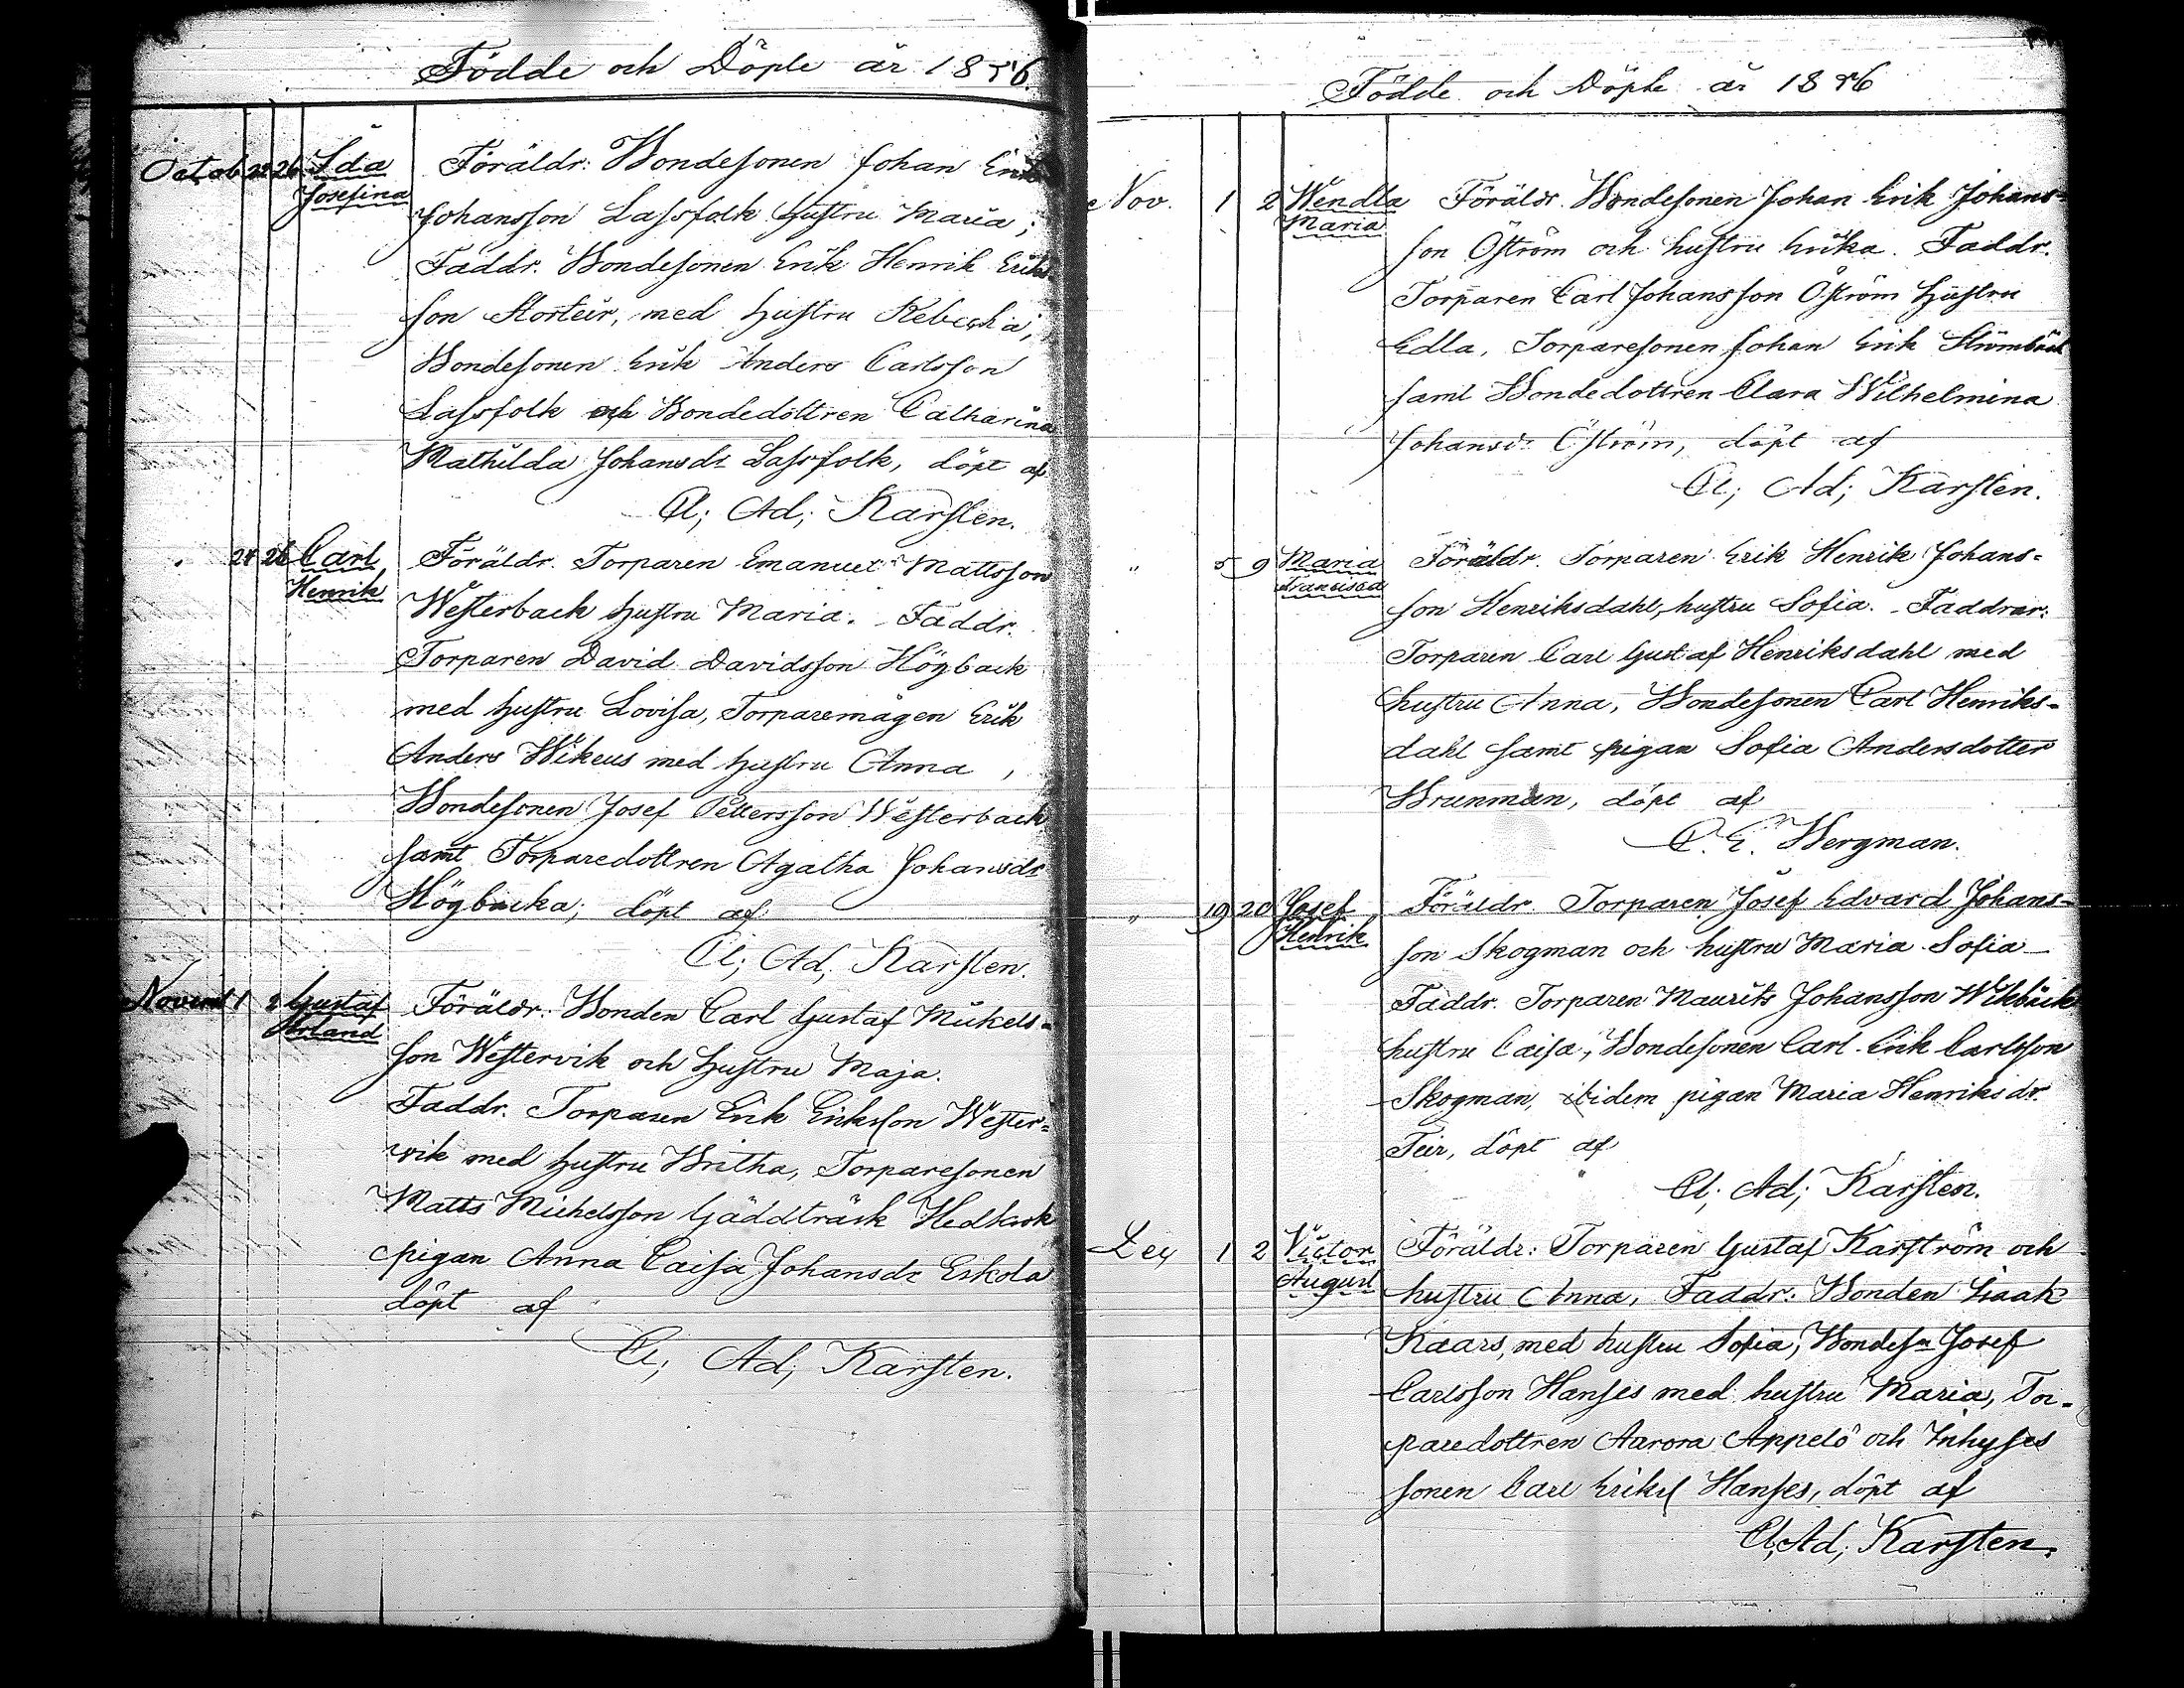 Födde och Döpte år 1886.
Octob 24 26 Ida Föräldr: Bondesonen Johan Erik
Josefina
Johansson Lassfolk hustru Maria;
Faddr. Bondesonen Erik Henrik Eriks-
son Storteir, med hustru Rebecka;
Bondesonen Erik Anders Carlsson
Lassfolk och Bondedottren Catharina
Mathilda Johansdr Lassfolk, döpt af
Cl; Ad; Karsten.
" 24 26 Carl Föräldr. Torparen Emanuel Mattsson
Henrik
Westerback hustru Maria. Faddr.
Torparen David Davidsson Högback
med hustru Lovisa, Torparemågen Erik
Anders Wikeus med hustru Anna,
Bondesonen Josef Pettersson Westerback
samt Torparedottren Agatha Johansdr
Högbacka; döpt af
Cl; Ad; Karsten.
Novemb 1 2 Gustaf Föräldr. Bonden Carl Gustaf Mickels-
Arland
son Westervik och hustru Maja.
Faddr. Torparen Erik Eriksson Wester-
vik med hustru Britha, Torparesonen
Matts Michelsson Gäddträsk
pigan Anna Caisa Johansdr Eskola
döpt af
Cl; Ad; Karsten.
Födde och Döpte år 1886
Nov. 1 2 Wendla Föräldr. Bondesonen Johan Erik Johans-
Maria
son Öström och hustru Erika. Faddr.
Torparen Carl Johansson Öström hustru
Edla, Torparesonen Johan Erik Strömbäck
samt Bondedottren Clara Wilhelmina
Johansdr Öström, döpt af
Cl; Ad; Karsten.
" 5 9 Maria Föräldr. Torparen Erik Henrik Johans-
Francisca
son Henriksdahl, hustru Sofia. Faddrar:
Torparen Carl Gustaf Henriksdahl med
hustru Anna, Bondesonen Carl Henriks-
dahl samt pigan Sofia Andersdotter
Brunman, döpt af
C. E. Bergman.
" 19 20 Josef Föräldr. Torparen Josef Edvard Johans-
Henrik
son Skogman och hustru Maria Sofia
Faddr. Torparen Maurits Johansson Wikbäck
hustru Caisa, Bondesonen Carl Erik Carlsson
Skogman, ibidem pigan Maria Henriksdr.
Teir, döpt af
Cl; Ad; Karsten.
Dec 1 2 Victor Föräldr: Torparen Gustaf Karström och
August
hustru Anna, Faddr: Bonden Isaak
Kaars, med hustru Sofia, Bondesn Josef
Carlsson Hanses med hustru Maria, Tor-
paredottren Aurora Appelö och Inhyses
sonen Carl Eriks Hanses, döpt af
Cl; Ad; Karsten.